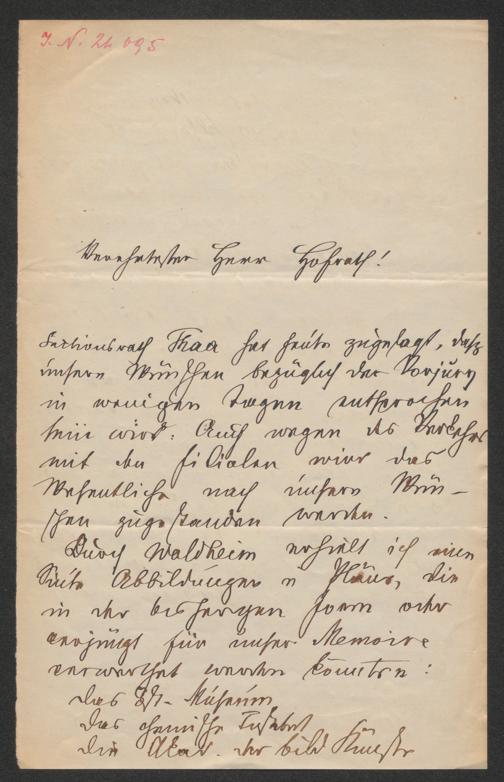 J. N. 24 095
Verehrtester Herr Hofrath!
Sectionsrath Thaa hat heute zugesagt, daß
unsern Wünschen bezüglich der Vorjury
in wenigen Tagen entsprochen
sein wird. Auch wegen des Verkehrs
mit den Filialen wird das
Wesentliche nach unsern Wün-
schen zugestanden werden.
Durch Waldheim erhielt ich eine
Suite Abbildungen u Pläne, die
in der bisherigen Form oder
verjüngt für unser Memoire
verwerthet werden könnten:
das Öst. Museum
das chemische Institut
die Akad. der bild Künste